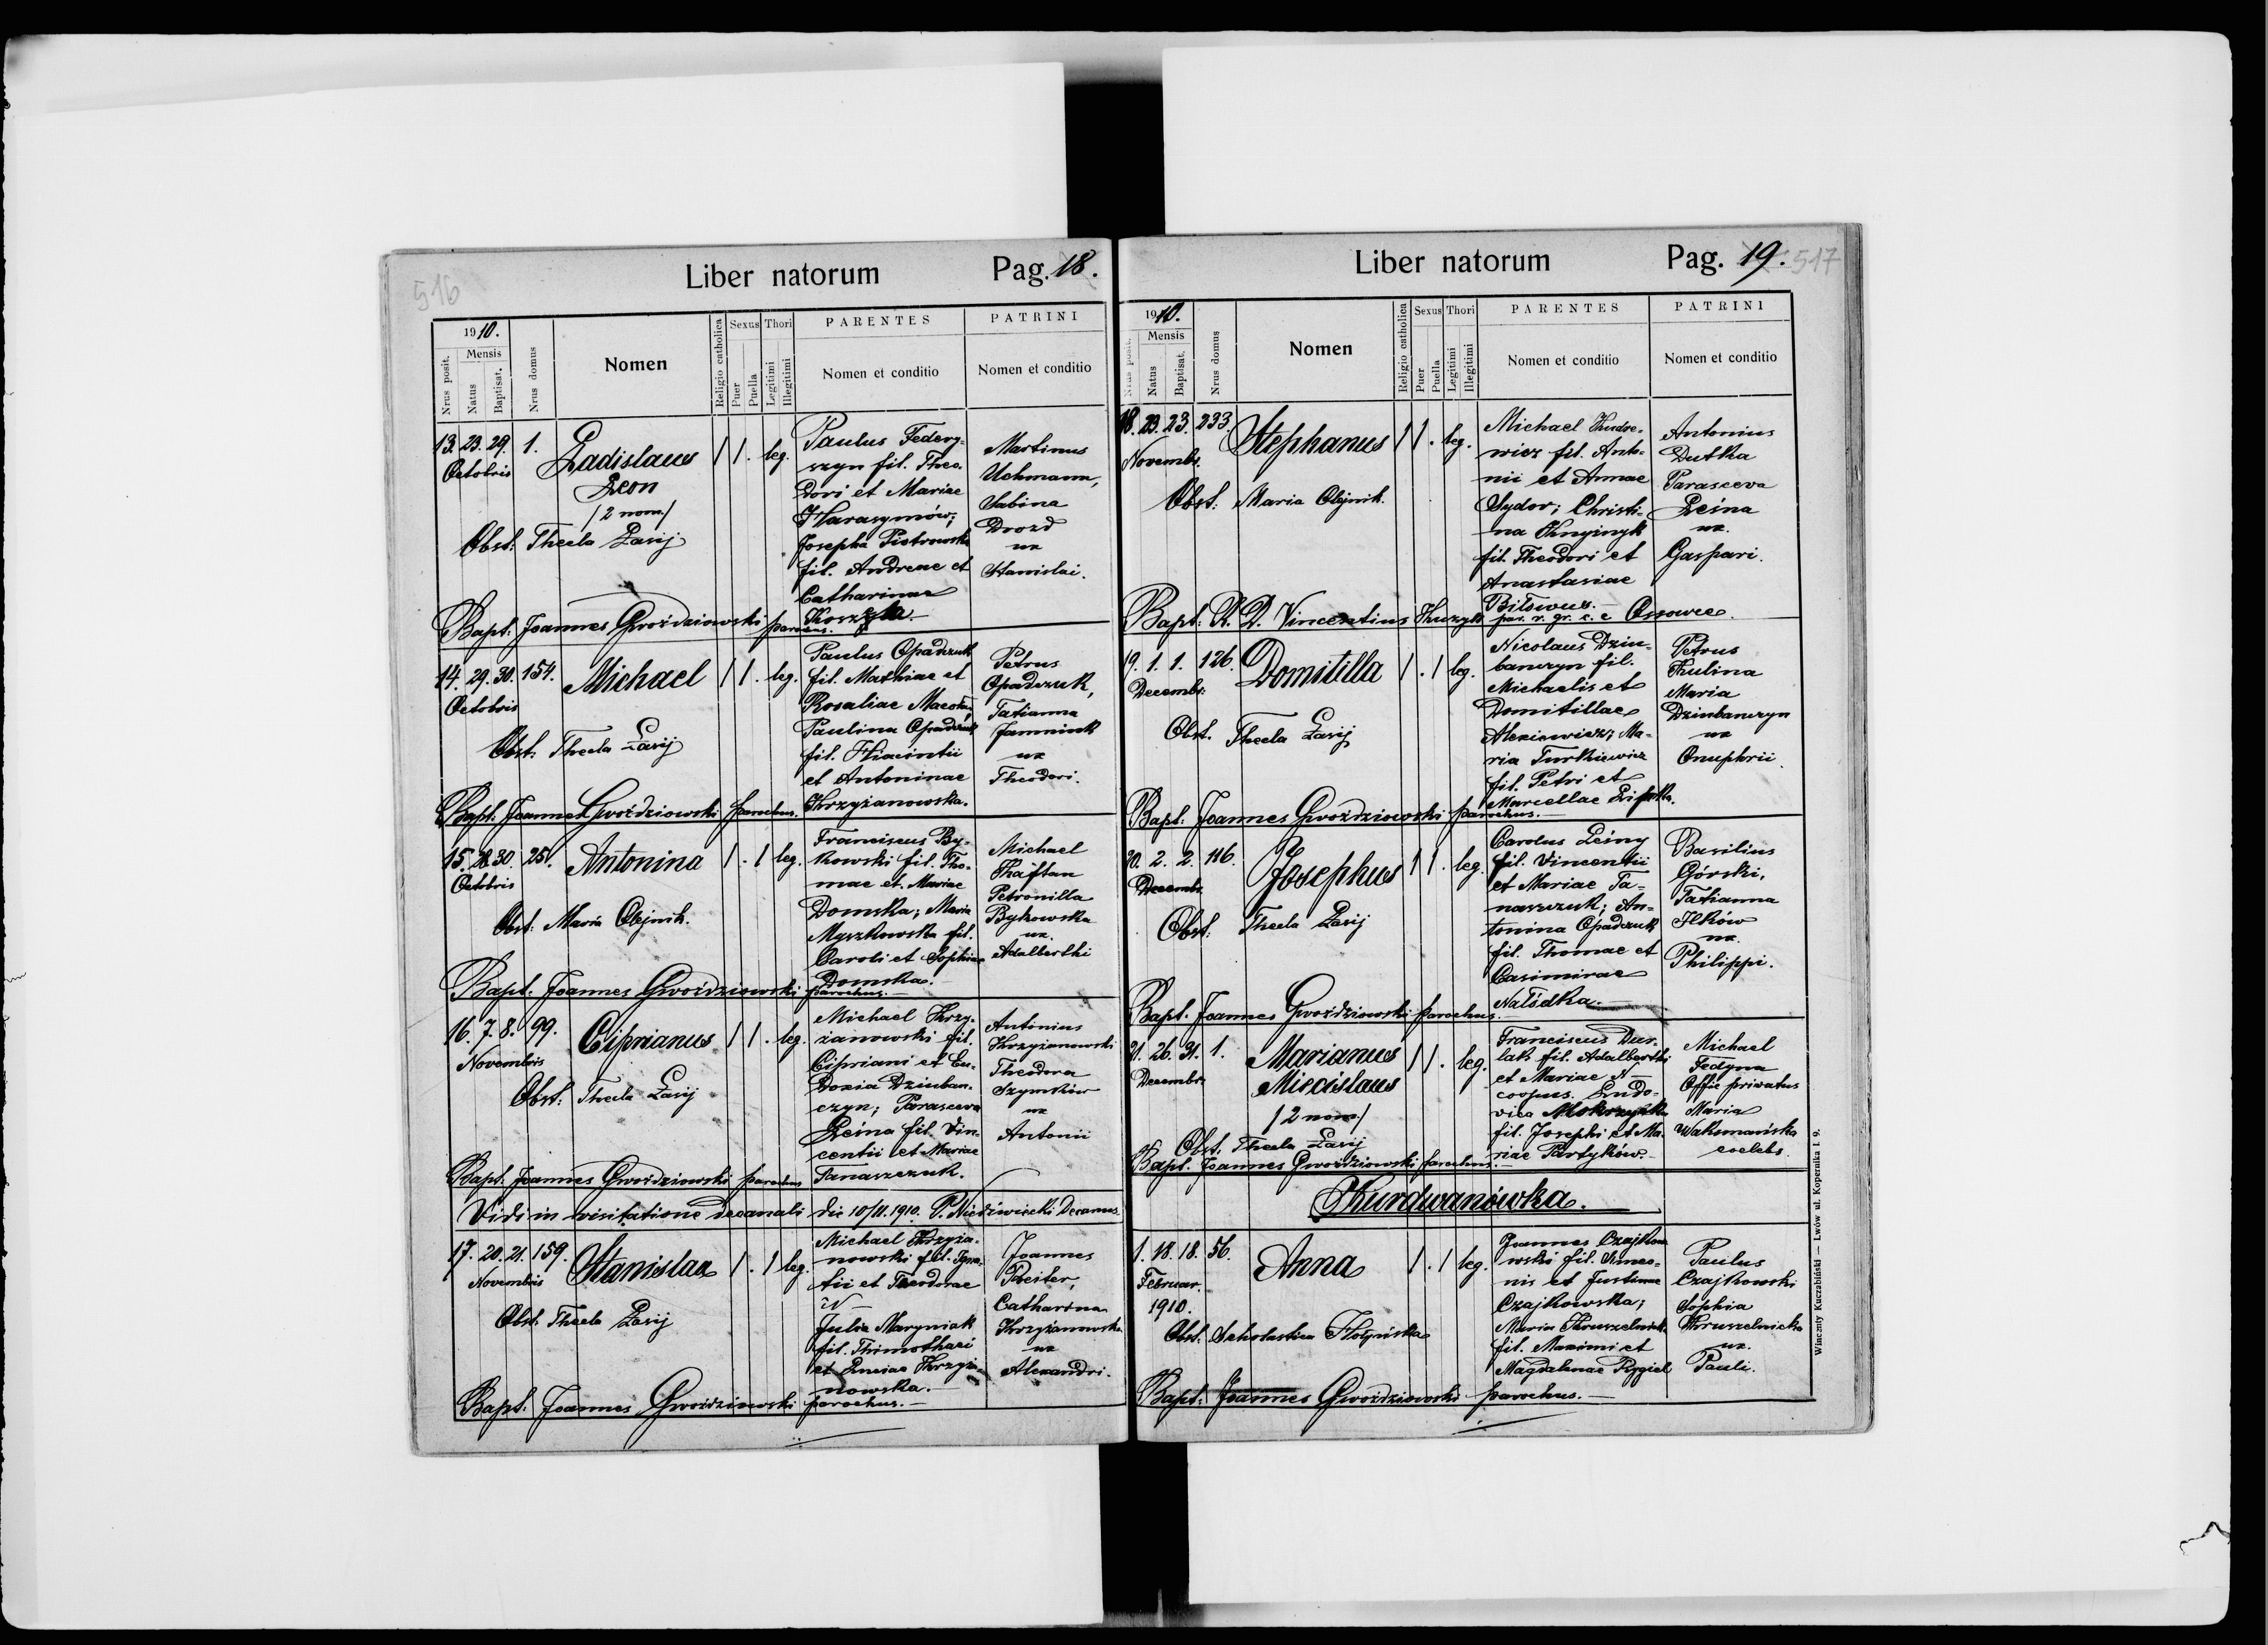 516
Liber natorum Pag. 18.
1910.
Mensis
Nrus posit.
Natus
Baptisat.
Nrus domus
Nomen
Religio catholica
Sexus
Puer
Puella
Thori
Legitimi
Illegitimi
PARENTES
Nomen et conditio
PATRINI
Nomen et conditio
13. 23. 29. 1.
Octobris
Ladislaus
Leon
/2 nom./
1 1. leg.
Paulus Federy-
szyn fil. Theo-
dori et Mariae
Harasymów;
Josepha Piotrowska
fil. Andreae et
Catharinae
Martinus
Uchmann,
Sabina
Drozd
ux
Stanislai.
Obst: Thecla Zasij
Bapt: Joannes Gwoździowski parochus.
14. 29. 30. 154.
Octobris
Michael
1 1. leg.
Paulus Opadczuk
fil. Mathiae et
Rosaliae
Paulina Opadczuk
fil. Hiacintii
et Antoninae
Krzyżanowska.
Petrus
Opadczuk,
Tatianna
Jamniuk
ux
Theodori.
Obst: Thecla Zasij
Bapt: Joannes Gwoździowski parochus.
15. 28. 30. 251.
Octobris
Antonina
1. 1 leg.
Franciscus By-
kowski fil. Tho-
mae et Mariae
Domska; Maria
Myszkowska fil.
Caroli et Sophiae
Domska.
Michael
Kaftan
Petronilla
Bykowska
ux.
Adalberthi
Obst: Maria Olejnik.
Bapt: Joannes Gwoździowski parochus.
16. 7. 8. 99.
Novembris
Ciprianus
1 1. leg.
Michael Krzy-
żanowski fil.
Cipriani et Eu-
doxia Dziuban-
czyn; Parasceva
Leśna fil. Vin-
centii et Mariae
Tanaszczuk.
Antonius
Krzyżanowski
Theodora
Szymków
ux
Antonii
Obst: Thecla Zasij
Bapt. Joannes Gwoździowski parochus
Vidi in visitatione decanali die 10/11.1910. P. Niedźwiecki Decanus
17. 20. 21. 159.
Novembris
Stanislaa
1. 1 leg.
Michael Krzyża-
nowski fil. Igna-
tii et Theodorae
N—
Julia Maryniak
fil. Thimothaei
et Krzyża-
nowska.
Joannes
Reiter,
Catharina
Krzyżanowska
ux
Alexandri.
Obst. Thecla Zasij
Bapt: Joannes Gwoździowski parochus.
Liber natorum Pag. 19. 517
1910.
Mensis
Nrus posit.
Natus
Baptisat.
Nrus domus
Nomen
Religio catholica
Sexus
Puer
Puella
Thori
Legitimi
Illegitimi
PARENTES
Nomen et conditio
PATRINI
Nomen et conditio
18. 23. 23. 233.
Novembr.
Stephanus
1 1. leg.
Michael Kudre-
wicz fil. Anto-
nii et Annae
Sydor; Christi-
na
fil. Theodori et
Anastasiae
Antonius
Dutka
Parasceva
Leśna
ux.
Gaspari.
Obst: Maria Olejnik.
Bapt: R. D. Vincentius par. r. gr. c. e Ossowce.
19. 1. 1. 126.
Decembr:
Domitilla
1. 1 leg.
Nicolaus Dziu-
banczyn fil.
Michaelis et
Domitillae
Alexiewicz; Ma-
ria Turkiewicz
fil. Petri et
Marcellae
Petrus
Kulina
Maria
Dziubanczyn
ux
Onuphrii.
Obst. Thecla Zasij
Bapt: Joannes Gwoździowski parochus.
20. 2. 2. 116.
Decembr.
Josephus
1 1. leg.
Carolus Leśny
fil. Vincentii
et Mariae Ta-
naszczuk; An-
tonina Opadczuk
fil. Thomae et
Casimirae
Basilius
Górski,
Tatianna
Ilków
ux.
Philippi.
Obst: Thecla Zasij
Bapt. Joannes Gwoździowski parochus.
21. 26. 31. 1.
Decembr.
Marianus
Miecislaus
/2 nom./
1 1. leg.
Franciscus
fil. Adalberthi
et Mariae N—
Ludo-
vica
fil. Josephi et Ma-
riae Partyków.
Michael
Fedyna
Offic privatus
Maria
Waksmańska
coelebs.
Obst. Thecla Zasij
Bapt. Joannes Gwoździowski parochus.
Kurdwanówka.
1. 18. 18. 56.
Februar.
1910.
Anna
1. 1 leg.
Joannes Czajkow
wski fil. Simeo-
nis et Justinae
Czajkowska;
Maria Kruszelnicka
fil. Maximi et
Magdalenae
Paulus
Czajkowski
Sophia
Kruszelnicka
ux.
Pauli.
Obst. Scholastica
Bapt: Joannes Gwoździowski parochus.
Wincenty Kuczabiński — Lwów ul. Kopernika l. 9.